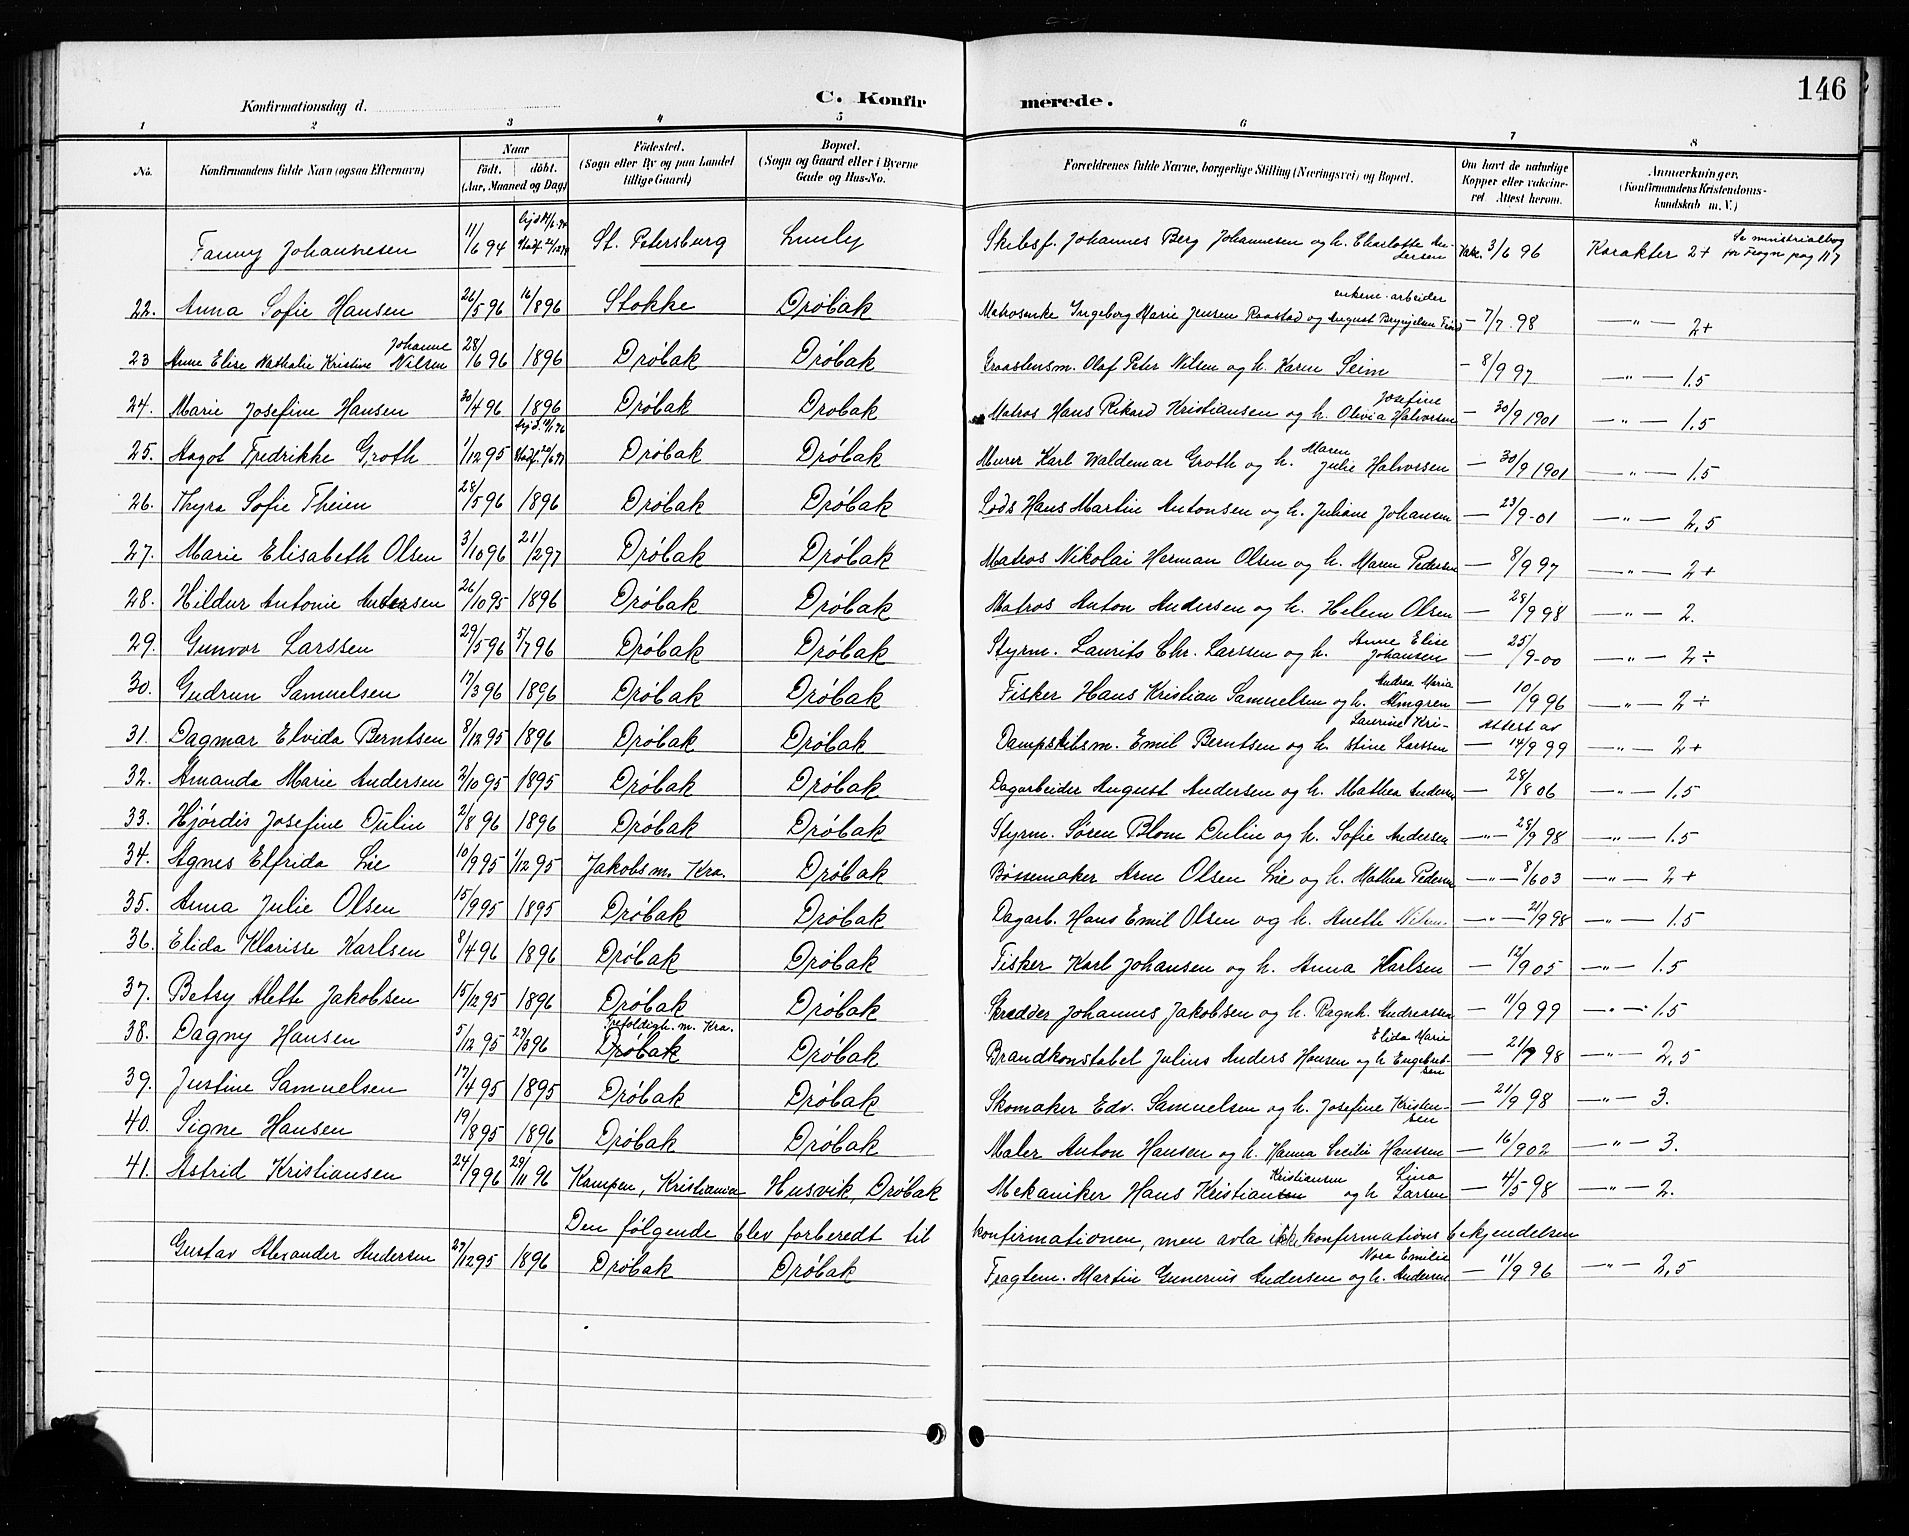 146
Konfirmationsdag d.
C. Konfirmerede.
1 2 3 4 5 6 7 8
No. Konfirmandens fulde Navn (ogsaa Efternavn) Naar født. døbt. (Aar, Maaned og Dag) Fødested. (Sogn eller By og paa Landet tillige Gaard) Bopæl. (Sogn og Gaard eller i Byerne Gade og Hus-No. Forældrenes fulde Navne, borgerlige Stilling (Næringsvei) og Bopæl. Om havt de naturlige Kopper eller vakcineret Attest herom. Anmærkninger. (Konfirmandens Kristendomskundskab m. V.)
Fanny Johannesen 11/6 94 St. Petersburg Skibsf. Johannes Berg Johannesen og h. Charlotte Andersen Vakc. 3/6 96 Karakter 2+ Se ministrialbog for Frogn pag 117
22. Anna Sofie Hansen 26/5 96 16/8 96 Stokke Drøbak Matrosenke Ingeborg Marie Jensen Raastad og August Brynjelsen — 7/7. 98 —"— 2+
23 Anne Elise Nathalie Kristine Johanne Nilsen 28/6 96 1896 Drøbak Drøbak Graastensm. Olaf Peter Nilsen og h. Karen Seim — 8/9 97 —"— 1.5
24. Marie Josefine Hansen 30/4 96 1896 Drøbak Drøbak Matros Hans Rikard Kristiansen og h. Olivia Josefine Halvorsen — 30/9 1901 —"— 1.5
25. Aagot Fredrikke Groth 1/12 95 Drøbak Drøbak Murer Karl Waldemar Groth og h. Maren Julie Halvorsen — 30/9 1901 —"— 1.5
26. Thyra Sofie Theien 28/5 96 1896 Drøbak Drøbak Lods Hans Martin Antonsen og h. Juliane Johansen — 23/9-01 —"— 2,5
27. Marie Elisabeth Olsen 3/10 96 21/2 97 Drøbak Drøbak Matros Nikolai Herman Olsen og h. Maren Pedersen — 8/9 97 —"— 2+
28. Hildur Antonie Andersen 26/10 95 1896 Drøbak Drøbak Matros Anton Andersen og h. Helene Olsen — 28/9 98 —"— 2.
29. Gunvor Larssen 29/5 96 5/7 96 Drøbak Drøbak Styrm. Laurits Chr. Larssen og h. Anne Elise Johansen — 25/9-00 —"— 2÷
30. Gudrun Samuelsen 17/3 96 1896 Drøbak Drøbak Fisker Hans Kristian Samuelsen og h. Andrea Maria Almgren — 10/9 96 —"— 2÷
31. Dagmar Elvida Berntsen 8/12 95 1896 Drøbak Drøbak Dampskibsm. Emil Berntsen og h. Laurine Kristine Larssen Attest av — 14/9 99 —"— 2+
32. Amanda Marie Andersen 2/10 95 1895 Drøbak Drøbak Dagarbeider August Andersen og h. Mathea Andersen — 28/8 06 —"— 1.5
33. Hjørdis Josefine Dulin 2/8 96 1896 Drøbak Drøbak Styrm. Søren Blom Dulin og h. Sofie Andersen —"— 28/9 98 —"— 1.5
34. Agnes Elfrida Lie 10/9 95 1/12 95 Jakobs m. Kra. Drøbak Bøssemaker Arne Olsen Lie og h. Mathea Pedersen —"— 8/6 03 —"— 2+
35. Anna Julie Olsen 15/9 95 1895 Drøbak Drøbak Dagarb. Hans Emil Olsen og h. Anethe Nilsen. —"— 21/9 98 —"— 1.5
36. Elida Klarisse Karlsen 8/4 96 1896 Drøbak Drøbak Fisker Karl Johansen og h. Anna Karlsen — 12/9 05 —"— 1.5
37. Betsy Alette Jakobsen 15/12 95 1896 Drøbak Drøbak Skrædder Johannes Jakobsen og h. Ragnh. Andreassen — 11/9 99 —"— 1.5
38. Dagny Hansen 5/12 95 29/3 96 Trefoldigh. m. Kra. Drøbak Drøbak Brandkonstabel Julius Anders Hansen og h Elida Marie Engebretsen — 21/9 98 —"— 2,5
39. Justine Samuelsen 17/4 95 1895 Drøbak Drøbak Skomaker Edv. Samuelsen og h. Josefine Kristensen — 21/9 98 —"— 3.
40. Signe Hansen 19/8 95 1896 Drøbak Drøbak Maler Anton Hansen og h. Hanna Cecilie Hanssen — 16/9 02 —"— 3.
41. Astrid Kristiansen 24/9 96 29/11 96 Kampen, Kristiania Husvik, Drøbak Mekaniker Hans Kristiansen Kristiansen og h Lina Larsen — 4/5-98 —"— 2.
Den følgende blev forberedt til konfirmationen, men avla ikke konfirmationsbekjendelsen
Gustav Alexander Andersen 27/12 95 1896 Drøbak Drøbak Fragtem. Martin Gunerius Andersen og h. Nora Emilie Andersen — 11/9 96 —"— 2,5